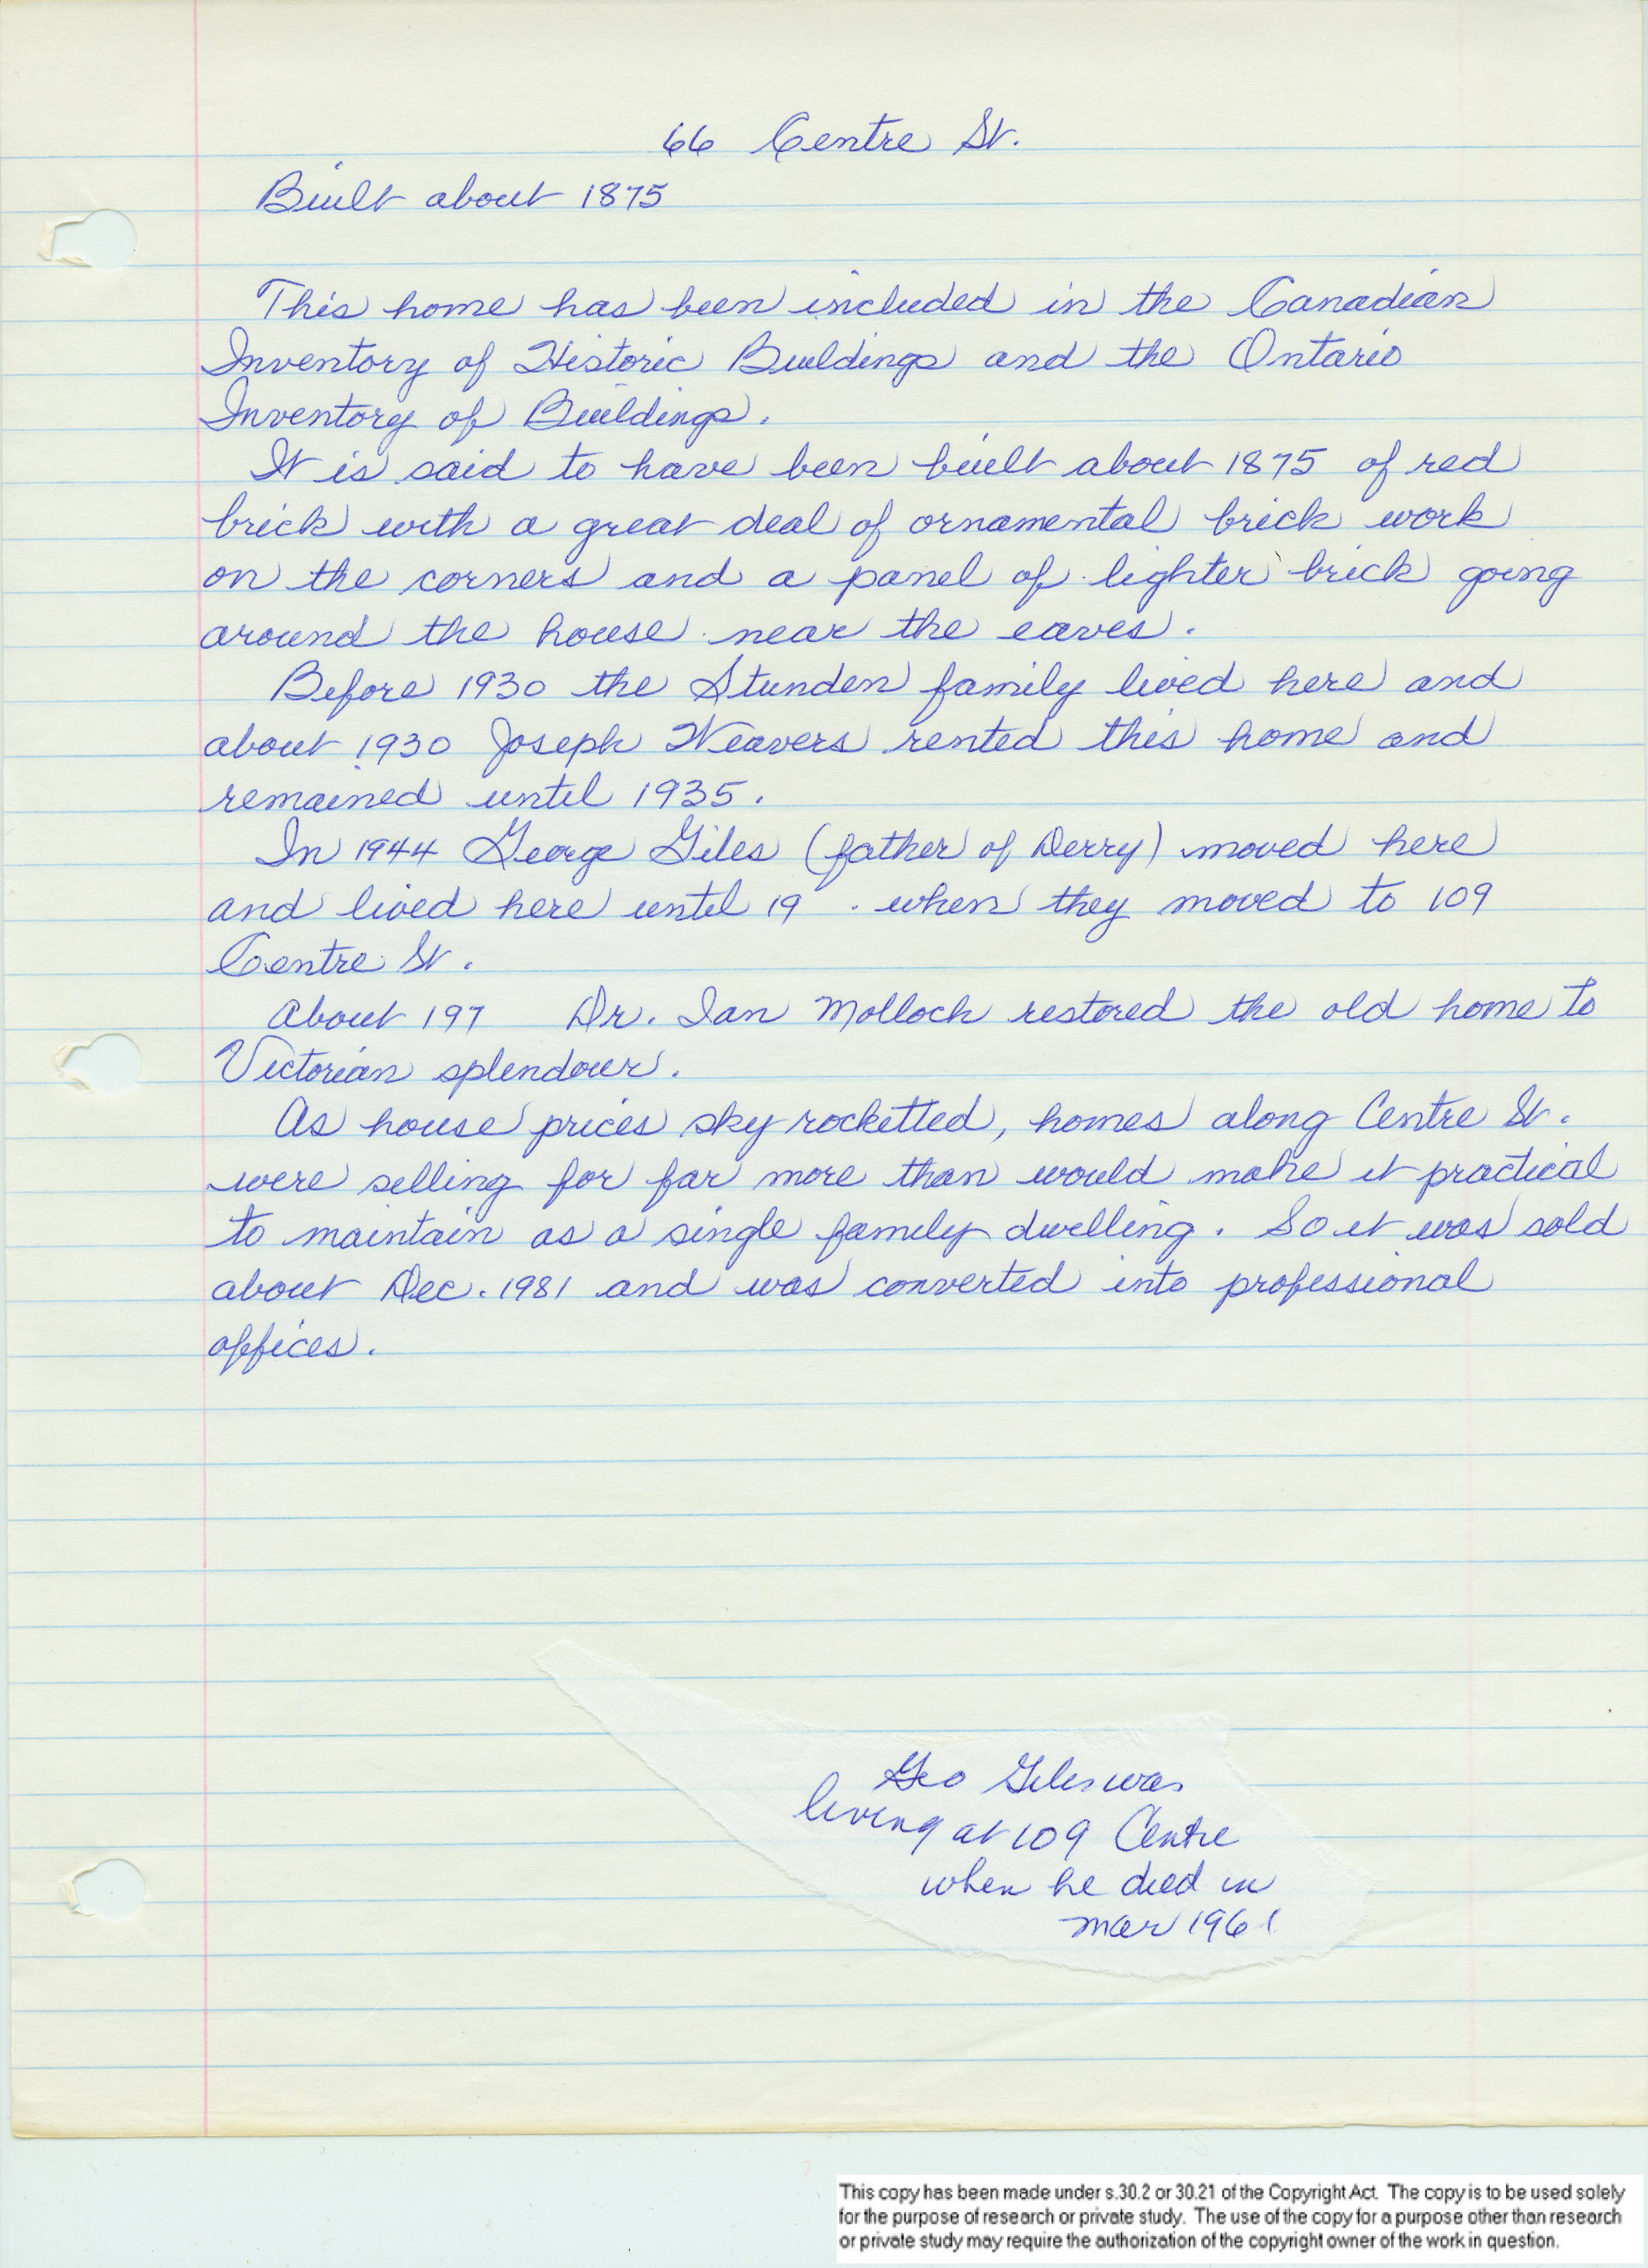 66 Centre St.
Built about 1875
This home has been included in the Canadian
Inventory of Historic Buildings and the Ontario
Inventory of Buildings.
It is said to have been built about 1875 of red
brick with a great deal of ornamental brick work
on the corners and a panel of lighter brick going
around the house near the eaves.
Before 1930 the Stunden family lived here and
about 1930 Joseph Weavers rented this home and
remained until 1935.
In 1944 George Giles (father of Derry) moved here
and lived here until 19 . when they moved to 109
Centre St.
About 197 Dr. Ian Molloch restored the old home to
Victorian splendour.
As house prices sky rocketted, homes along Centre St.
were selling for far more than would make it practical
to maintain as a single family dwelling. So it was sold
about Dec. 1981 and was converted into professional
offices.
Geo Giles was
living at 109 Centre
when he died in
Mar 1961
This copy has been made under s.30.2 or 30.21 of the Copyright Act. The copy is to be used solely
for the purpose of research or private study. The use of the copy for a purpose other than research
or private study may require the authorization of the copyright owner of the work in question.